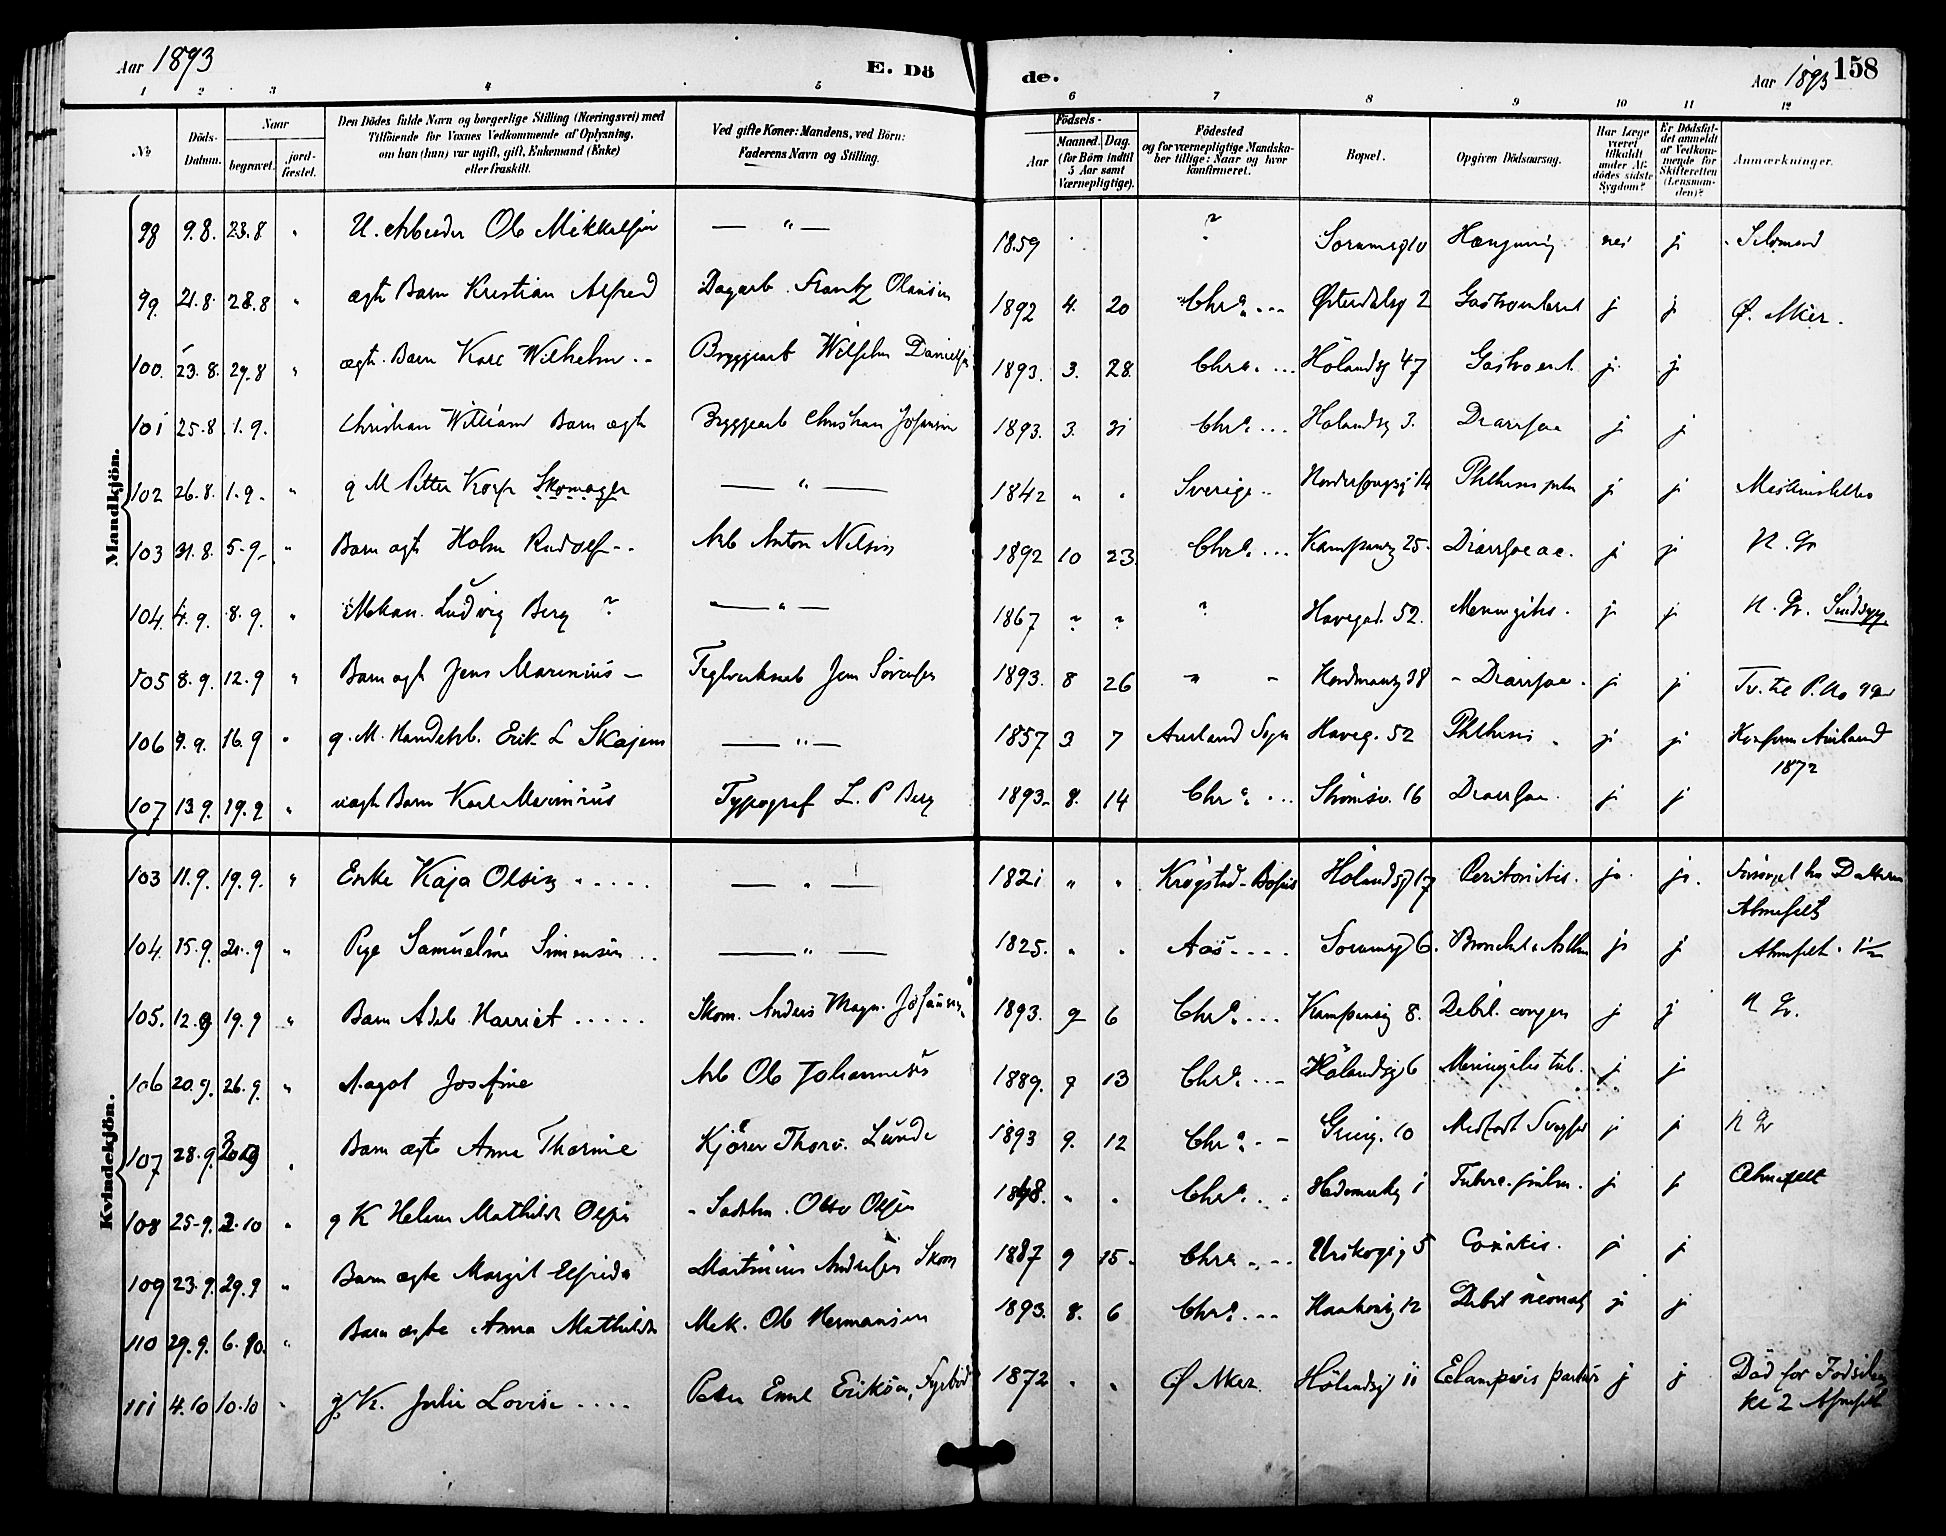 Aar 1893 E. Dö
de. Aar 1893 158
1 2 3 4 5 6 7 8 9 10 11 12
No
Döds-Datum.
Naar begravet. jordfæstet.
Den Dödes fulde Navn og borgerlige Stilling (Næringsvei) med
Tilföiende for Voxnes Vedkommende af Oplysning,
om han (hun) var ugift, gift, Enkemand (Enke)
eller fraskilt.
Ved gifte Koner: Mandens, ved Börn:
Faderens Navn og Stilling.
Födsels-
Aar Maaned. Dag.
(for Börn indtil
5 Aar samt
Værnepligtige).
Födested
og for værnepligtige Mandska-
ber tillige: Naar og hvor
konfirmeret.
Bopæl.
Opgiven Dödsaarsag.
Har Læge
været
tilkaldt
under Af-
dödes sidste
Sygdom?
Er Dödsfal-
det anmeldt
af Vedkom-
mende for
Skifteretten
(Lensman-
den)?
Anmærkninger.
Mandkjön.
98 9.8. 23.8 " U. Arbeider Ole Mikkelsen — " — 1859 ? nei j Selvmord
99. 21.8. 28.8 " ægt. Barn Kristian Alfred Dagarb. Frantz Olausen 1892 4. 20 Chra. ... Østerdalsg 2 j j Ø. Aker.
100. 23.8. 29.8 " ægt. Barn Karl Wilhelm .. Bryggearb Wilhelm Danielsen 1893. 3. 28. Chra. ... Hölandsg 47 Gastroent. j j
101 25.8 1.9. Christian William Barn ægte Bryggearb Christian Johansen 1893. 3. 31 Chra. ... Hölandsg 3. Diarrhoe j j
102 26.8. 1.9. " g M Petter Korp Skomager — " — 1842 " " Sverige .. j j
103 31.8. 5.9. " Barn ægte Holm Rudolf .. Arb Anton Nilsen 1892 10 23 Chra. ... Kampeng 25. Diarrhoea ac. j j N. Gr
104. 4.9. 8.9. " Mekan. Ludvig Berg ? — " — 1867 ? ? ? Havegad. 52. Meningitis. j j N. Gr. Sindssyg
105 8.9. 12.9 " Barn ægt Jens Marinius — Teglverksarb Jens Sörensen 1893. 8 26 " " Nordmansg 38 Diarrhoe. j j
106 9.9. 16.9 " g. M. Handelsb. Erik L Skajem — " — 1857 3 7 Aurland Sogn Haveg. 52 Phthisis j j Konfirm Aurland
1872
107 13.9. 19.9 " uægt Barn Karl Marinius Typograf L. P Berg 1893. 8. 14 Chra. ... Strömsv. 16 Diarrhoe. j j
Kvindekjön.
103 11.9. 19.9. " Enke Kaja Olsen ..... — " — 1821 " " Hölandsg 17 Peritonitis. ja. ja.
104. 15.9. 21.9 " Pige Samueline Simensen ... — " — 1825. " " Aas .... Sorumsg 6. j j
105. 12.9 19.9 " Barn Adele Harriet ..... Skom. Anders Magn. Johansen 1893. 9 6 Chra. ... Kampeng 8. Debil. congen j j N Gr.
106 20.9. 26.9. " Aagot Josefine Arb Ole Johannesen 1889. 9 13 Chra. ... Hölandsg 6 Meningitis tub. j j
107 28.9. Barn ægte Anna Thorine Kjörer Thorv. Lunde 1893 9. 12 Chra. .. j j N Gr
108 25.9. 2.10 " g K Helene Mathilde Olsen Olsen " " Chra. .. Hedemarksg 1 j j
109 23.9. 29.9 " Barn ægte Margit Elfrida Martinius Andersen Skom 1887 9 15. Chra. ... Urskogsg 5 Coxitis. j j
110 29.9. 6.10. " Barn ægte Anna Mathilde Mek. Ole Hermansen 1893. 8. 6 Chra. ... Haakonsg 12 Debil neonat j j
111 4.10 10.10 " g K. Julie Lovise .... Peter Emil Eriksen, Fyrböd 1872 " " Ø Aker. Hölandsg 11 Eclampsis j j Död for Födselen
kl 2